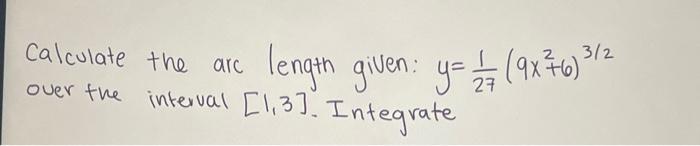 Calculate the arc length given: y= 1/27 (9x²+6)^3/2
over the interval [1,3]. Integrate